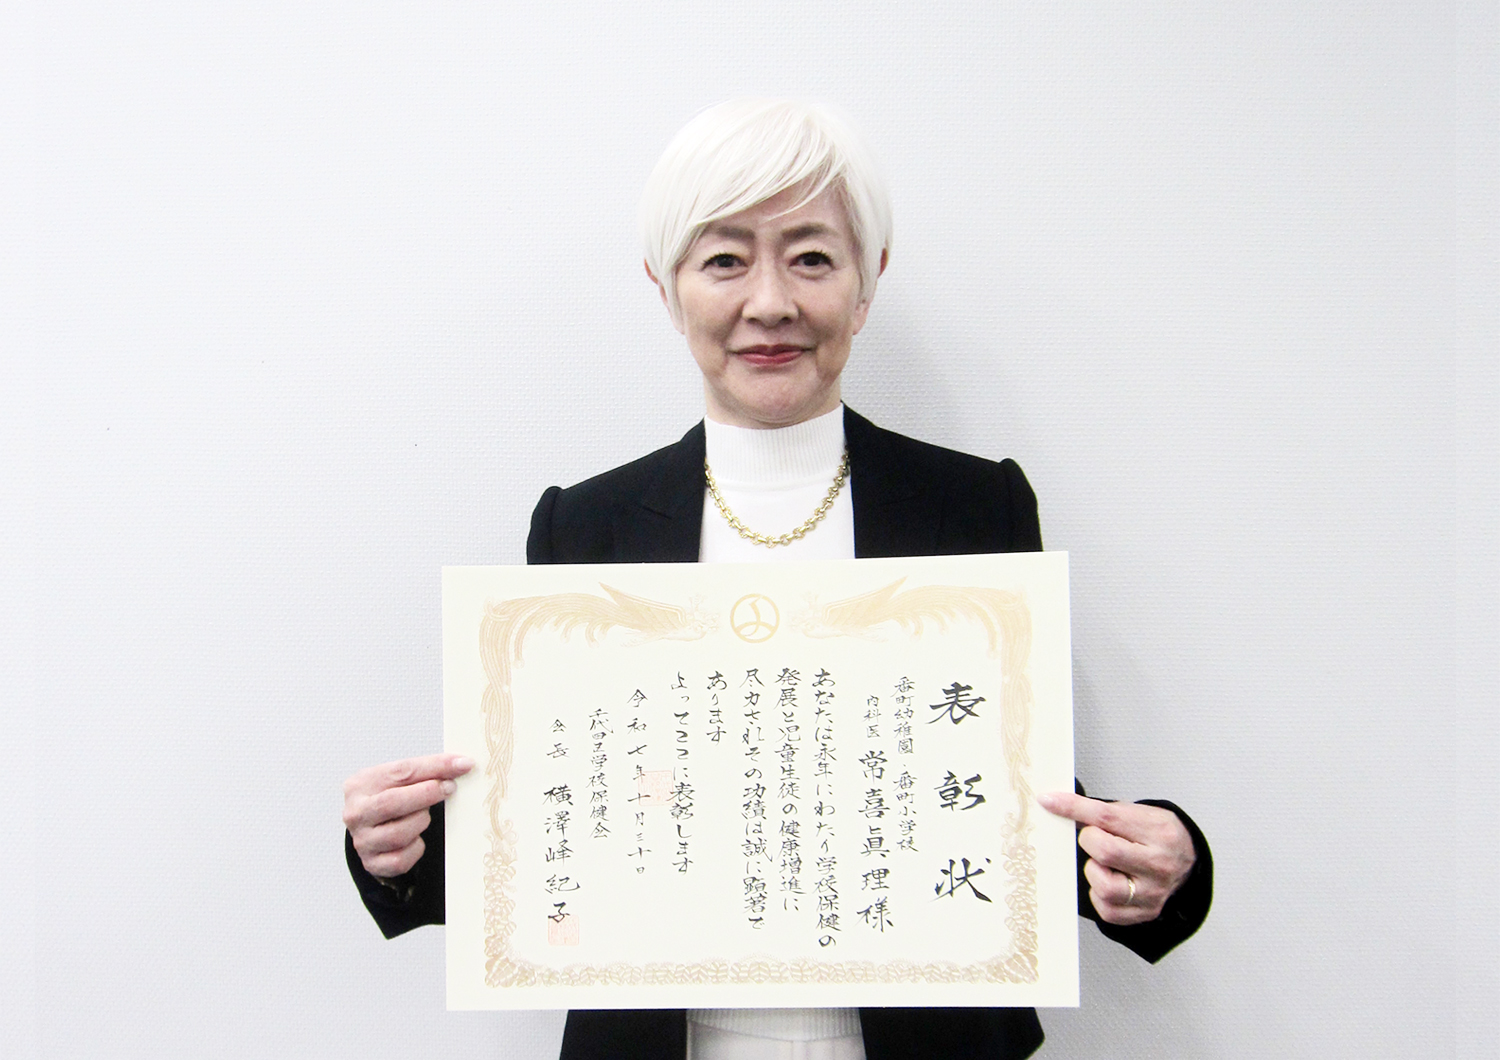 表彰状
番町幼稚園・番町小学校
内科医 常喜眞理様
あなたは永年にわたり学校保健の
発展と児童生徒の健康増進に
尽力されその功績は誠に顕著で
あります
よってここに表彰します
令和七年十月三十日
千代田区学校保健会
会長 横澤峰紀子